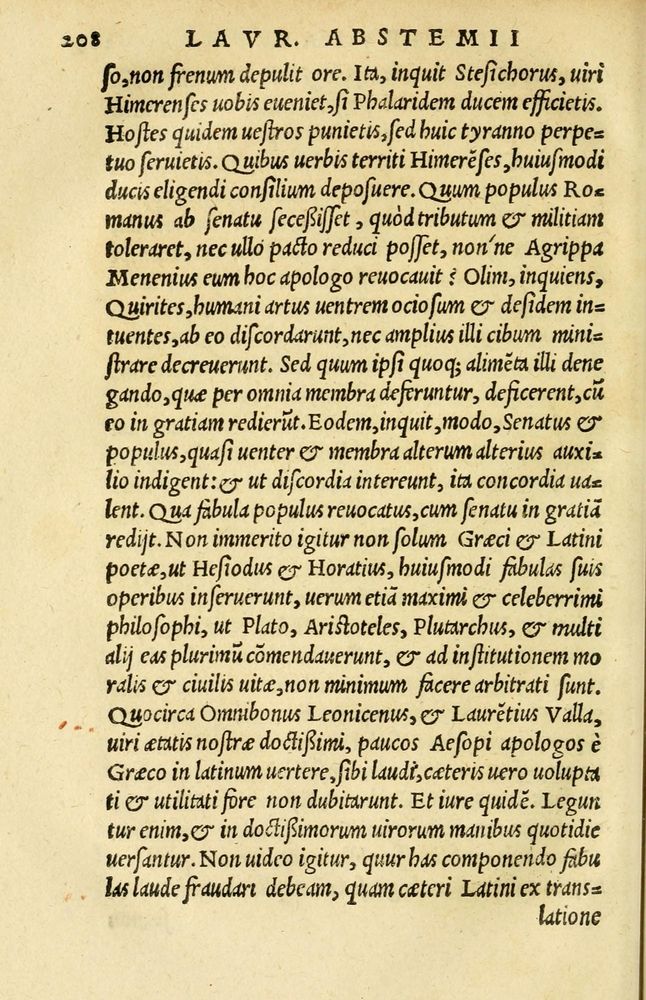 208 LAVR. ABSTEMII
ſo, non frenum depulit ore. Ita, inquit Steſichorus, uiri
Himerenſes uobis eueniet, ſi Phalaridem ducem efficietis.
Hoſtes quidem ueſtros punietis, ſed huic tyranno perpe=
tuo ſeruietis. Quibus uerbis territi Himerēſes, huiuſmodi
ducis eligendi conſilium depoſuere. Quum populus Ro=
manus ab ſenatu ſeceßiſſet, quòd tributum & militiam
toleraret, nec ullo pacto reduci poſſet, non´ne Agrippa
Menenius eum hoc apologo reuocauit? Olim, inquiens,
Quirites, humani artus uentrem ocioſum & deſidem in=
tuentes, ab eo diſcordarunt, nec amplius illi cibum mini=
ſtrare decreuerunt. Sed quum ipſi quoq; alimēta illi dene
gando, quæ per omnia membra deferuntur, deficerent, cū
eo in gratiam redierūt. Eodem, inquit, modo, Senatus &
populus, quaſi uenter & membra alterum alterius auxi=
lio indigent: & ut diſcordia intereunt, ita concordia ua=
lent. Qua fabula populus reuocatus, cum ſenatu in gratiā
redijt. Non immerito igitur non ſolum Græci & Latini
poetæ, ut Heſiodus & Horatius, huiuſmodi fabulas ſuis
operibus inſeruerunt, uerum etiā maximi & celeberrimi
philoſophi, ut Plato, Ariſtoteles, Plutarchus, & multi
alij eas plurimū cōmendauerunt, & ad inſtitutionem mo
ralis & ciuilis uitæ, non minimum facere arbitrati ſunt.
Quocirca Omnibonus Leonicenus, & Laurētius Valla,
uiri ætatis noſtræ doctißimi, paucos Aeſopi apologos è
Græco in latinum uertere, ſibi laudi, cæteris uero uolupta
ti & utilitati fore non dubitarunt. Et iure quidē. Legun
tur enim, & in doctißimorum uirorum manibus quotidie
uerſantur. Non uideo igitur, quur has componendo fabu
las laude fraudari debeam, quam cæteri Latini ex trans=
latione